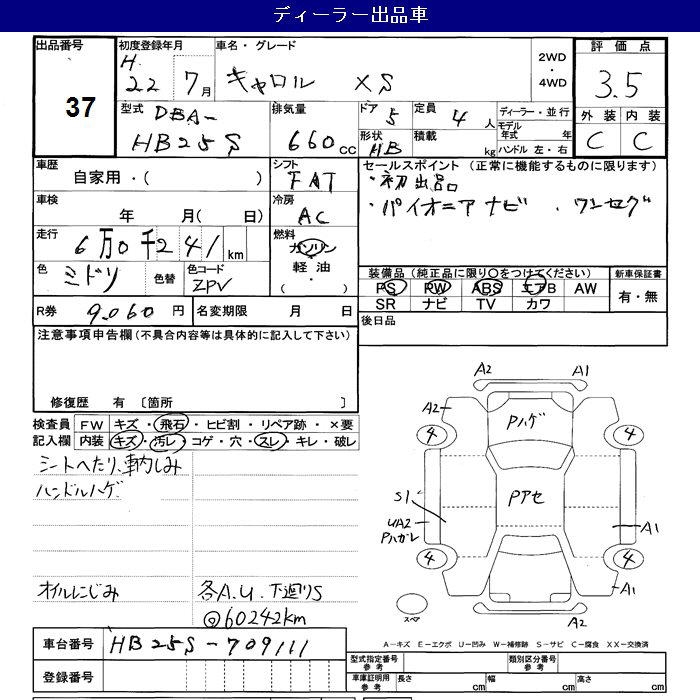 ディーラー出品車
出品番号 初度登録年月 車名・グレード 2WD・4WD 評価点
37 H.22年7月 キャロル XS 3.5
型式 DBA-HB25S 排気量 660cc ドア 5 定員 4人 ディーラー・並行 外装 内装
形状 HB 積載 kg モデル年式 年 ハンドル 左・右 C C
車歴 自家用・( ) シフト FAT セールスポイント(正常に機能するものに限ります)
・初出品
車検 年 月( 日) 冷房 AC ・パイオニアナビ . ワンセグ
走行 6万0千241km 燃料 ガソリン・軽油・( )
色 ミドリ 色替 色コード ZPV 装備品(純正品に限り○をつけてください) 新車保証書
PS PW ABS エアB AW 有・無
SR ナビ TV カワ
R券 9.060円 名変期限 月 日 後日品
注意事項申告欄(不具合内容等は具体的に記入して下さい)
修復歴 有 〔箇所 〕
検査員 FW キズ・飛石・ヒビ割・リペア跡・×要
記入欄 内装 キズ・汚レ・コゲ・穴・スレ・キレ・破レ
シートへたり、車内しみ
ハンドルハゲ
オイルにじみ 各A.U.下廻りS
@60242km
A2 A1
A2 Pハゲ
4 4
S1 Pアセ
UA2 A1
Pハガレ
4 4
A1
スペア A2
車台番号 HB25S-709111
登録番号
A-キズ E-エクボ U-凹み W-補修跡 S-サビ C-腐食 XX-交換済
型式指定番号 参考 類別区分番号 参考
車庫証明用 参考 長さ cm 幅 cm 高さ cm